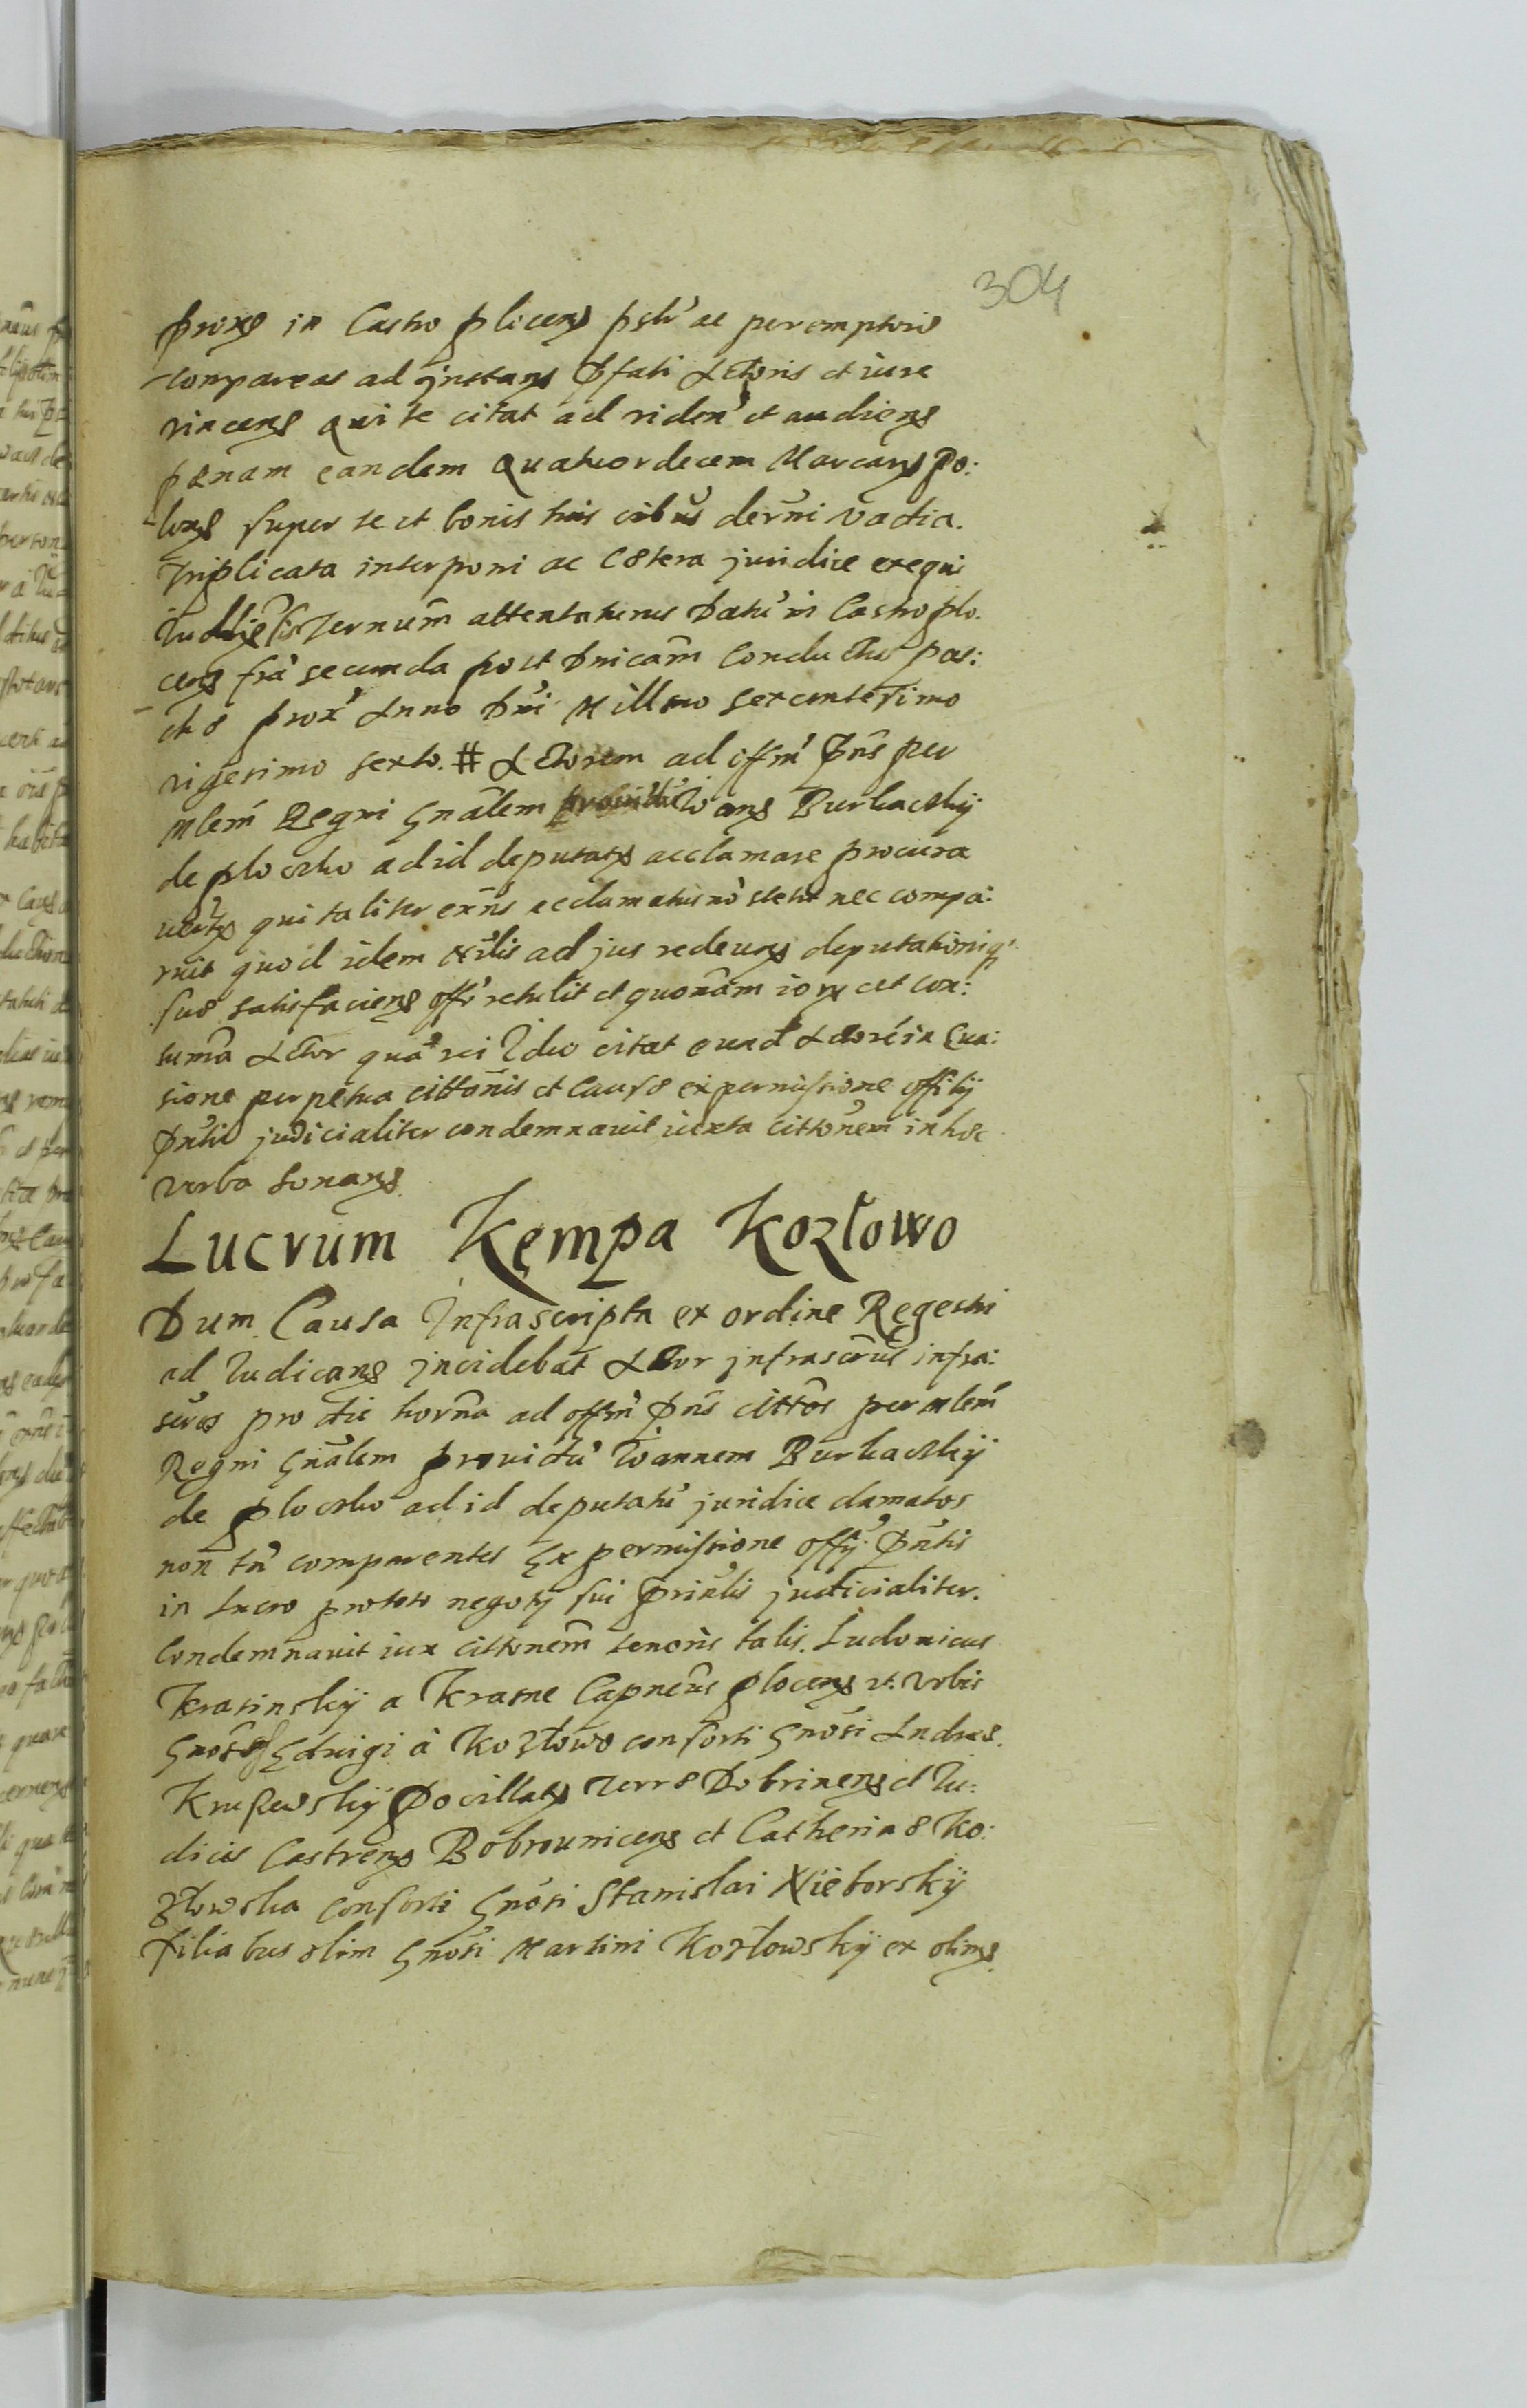 304
proxs in Castro plicens pstr' ac peremptorie
compareas ad instans pfati Actoris et iure
vincens qui te citat ad viden' et audiens
pænam eandem Quatuordecem Marcarum Po:
lons super te et bonis tuis oibus derni vadia.
Triplicata interponi ac cætera juridice exequi
Ternum attentaturus Datu' in Castro plo.
cens fria secunda post Dnicam Conductus pas:
chæ prox' Anno Dni Millmo Sexcentesimo
vigesimo sexto. # Actorem ad offm' Pns per
Mlem Regni Gnalem Ioans Burkacskÿ
de Plocsko ad id deputats acclamare procura
uerts qui taliter exns acclamatus no' stetit nec compa:
ruit quod idem Mlis ad jus rediens deputationiq'
suæ satisfaciens offo' retulit et quonam iors est con:
tuma Actor qua' rei Ideo citat eund' Actore' in Eua:
sione perpetua cittonis et Causæ ex permissione offitÿ
Pntis judicialiter condemnauit iuxta cittonem in hæc
verba sonans.
Lucrum Kempa Kozłowo
Dum Causa Infrascripta ex ordine Regestri
ad Iudicans incidebat Actor infrascrus infra:
scros pro die horna ad offm' Pns cittos per Mlem
Regni Gnalem prouidu' Ioannem Burkacskÿ
de Plocsko ad id deputatu' juridice clamatos
non tn' comparentes Ex permissione offÿ Pntis
in Lucro prototo negotÿ sui prinlis judicialiter.
Condemnauit iux cittonem tenoris talis. Ludouicus
Krasinskÿ a Krasne Capneus Plocens vt. Vobis
Gnosæ Eduigi à Kozłowo consorti Gnosi Andreæ.
Kruszewskÿ Pocillats Terræ Dobrinens et Iu:
dicis Castrens Bobrounicens et Catherinæ Ko:
złowska consorti Gnosi Stanislai Nieborskÿ
filiabus olim Gnosi Martini Kozłowskÿ ex olims